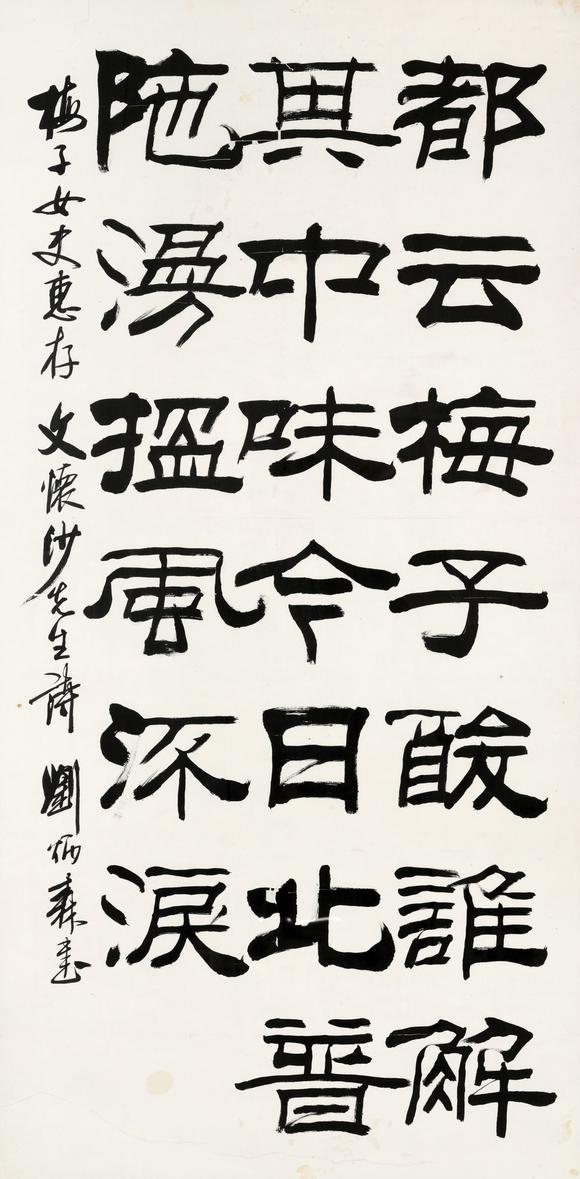 都云梅子酸誰解
其中味今日北普
陁漫搵風㳅淚
梅子女史惠存 文懷沙先生詩 劉炳森書